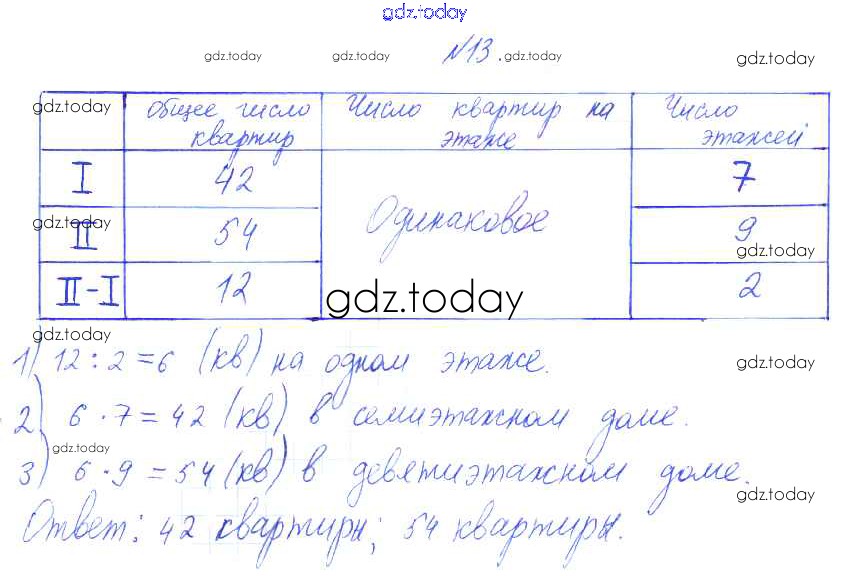 gdz.today
gdz.today gdz.today №13. gdz.today gdz.today
gdz.today общее число квартир Число квартир на этаже Число этажей
I 42 Одинаковое 7
gdz.today II 54 9 gdz.today
II-I 12 gdz.today 2
gdz.today
1) 12 : 2 = 6 (кв) на одном этаже. gdz.today
2) 6 · 7 = 42 (кв) в семиэтажном доме.
gdz.today
3) 6 · 9 = 54 (кв) в девятиэтажном доме.
gdz.today
Ответ: 42 квартиры; 54 квартиры.